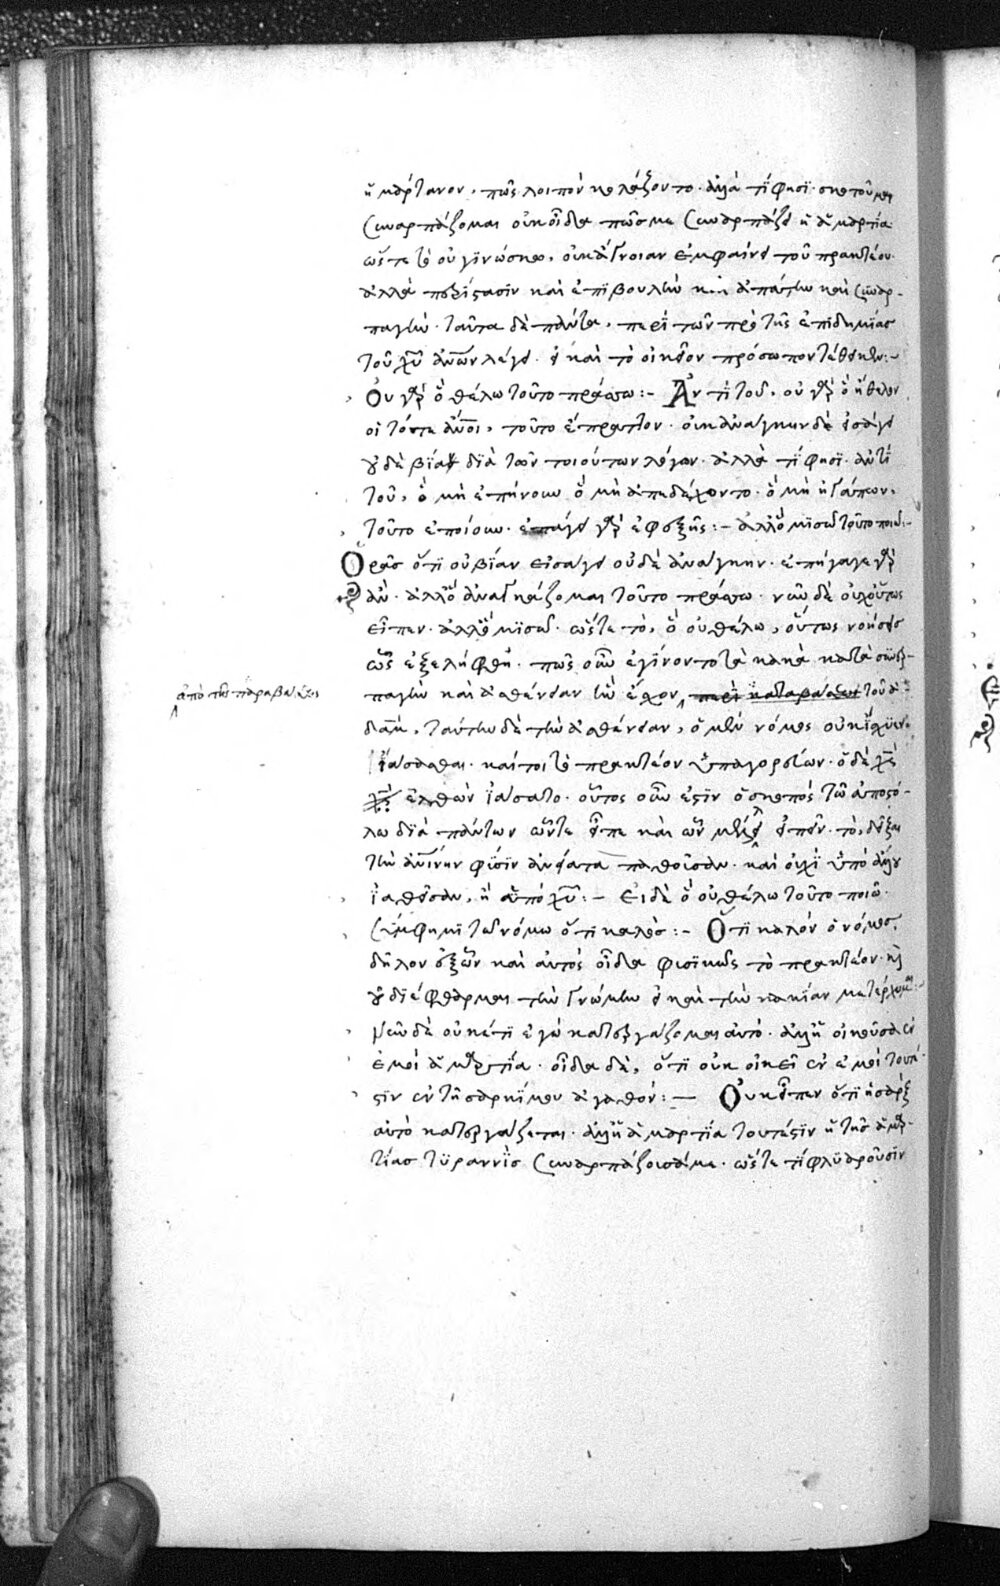 ἡμάρτανον, πῶς λοιπὸν κολάζοντο. ἀλλὰ τί φησι. σκοτοῦμαι
συναρπάζομαι οὐκ οἶδα πῶς με συναρπάζει ἡ ἁμαρτία
ὥστε τὸ οὐ γινώσκω, οὐκ ἄγνοιαν ἐμφαίνει τοῦ πρακτέου.
ἀλλὰ περίστασιν καὶ ἐπιβουλὴν καὶ ἀπάτην καὶ συναρ-
παγήν. ταῦτα δὲ πάντα, περὶ τῶν πρὸ τῆς ἐπιδημίας
τοῦ χυ ανων λέγει. εἰ καὶ τὸ οἰκεῖον πρόσωπον τέθεικεν:-
Οὐ γὰρ ὃ θέλω τοῦτο πράσσω:- Ἀντὶ τοῦ, οὐ γὰρ ὃ ἤθελον
οἱ τότε ανοι, τοῦτο ἔπραττον. οὐκ ἀνάγκην δὲ εἰσάγει
οὐδὲ βίαν διὰ τῶν τοιούτων λόγων. ἀλλὰ τί φησι. ἀντὶ
τοῦ, ὃ μὴ ἐπῄνουν ὃ μὴ ἀπεδέχοντο. ὃ μὴ ἠγάπων,
τοῦτο ἐποίουν. ἐπάγει γὰρ ἐφεξῆς:- ἀλλ' ὃ μισῶ τοῦτο ποιῶ:-
Ὁρᾶς ὅτι οὐ βίαν εἰσάγει οὐδὲ ἀνάγκην. ἐπήγαγε γὰρ
ἄν. ἀλλ' ὃ ἀναγκάζομαι τοῦτο πράσσω. νῦν δὲ οὐχ οὕτως
εἶπεν. ἀλλ' ὃ μισῶ. ὥστε τὸ, ὃ οὐ θέλω, οὕτως νοήσεις
ὡς ἐξελήφθη. πῶς οὖν ἐγίνοντο τὰ κακὰ κατὰ συναρ-
ἀπὸ τῆς παραβάσεως
παγὴν καὶ ἀσθένειαν ἣν ἔσχον περὶ καταβάσεως τοῦ ἀ-
δάμ. ταύτην δὲ τὴν ἀσθένειαν, ὁ μὲν νόμος οὐκ ἴσχυεν
ἰάσασθαι. καίτοι τὸ πρακτέον ὑπαγορεύων. ὁ δὲ χς
ἐλθὼν ἰάσατο. οὗτος οὖν ἐστὶν ὁ σκοπὸς τῷ ἀποστό-
λῳ διὰ πάντων ὧντε εἶπε καὶ ὧν μέλλει εἰπεῖν. τὸ, δεῖξαι
τὴν ανινην φύσιν ἀνίατα παθοῦσαν. καὶ οὐχὶ ὑπὸ ἄλλου
ἰαθεῖσαν, ἢ ἀπὸ χυ:- Εἰ δὲ ὃ οὐ θέλω τοῦτο ποιῶ.
σύμφημι τῷ νόμῳ ὅτι καλός:- Ὅτι καλὸν ὁ νόμος,
δῆλον ἐξ ὧν καὶ αὐτὸς οἶδα φυσικῶς τὸ πρακτέον. καὶ
οὐ διέφθαρμαι τὴν γνώμην εἰ καὶ τὴν κακίαν μετέρχομαι:-
Νῦν δὲ οὐκέτι ἐγὼ κατεργάζομαι αὐτὸ. ἀλλ' ἡ οἰκοῦσα ἐν
ἐμοὶ ἁμαρτία. οἶδα δὲ, ὅτι οὐκ οἰκεῖ ἐν ἐμοὶ τουτέ-
στιν ἐν τῇ σαρκί μου ἀγαθόν:- Οὐκ εἶπεν ὅτι ἡ σὰρξ
αὐτὸ κατεργάζεται. ἀλλ' ἡ ἁμαρτία τουτέστιν ἡ τῆς ἁμαρ-
τίας τυραννὶς συναρπάζουσά με. ὥστε τί φλυαροῦσιν